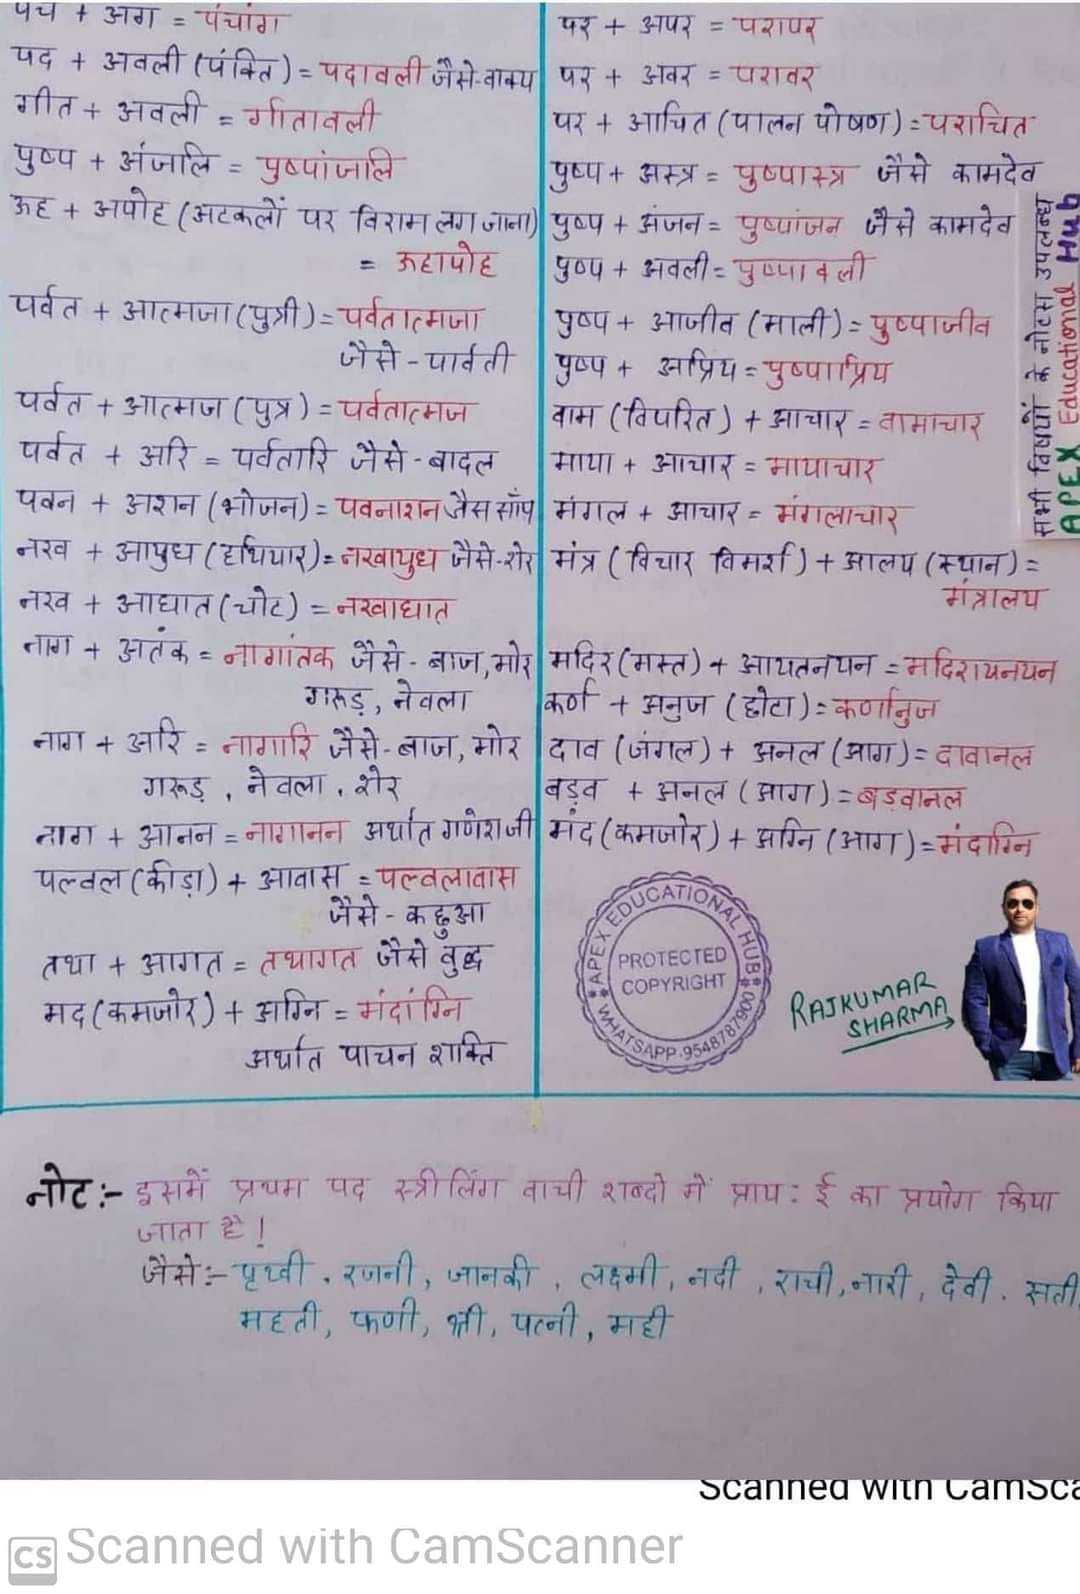 पंच + अंग = पंचांग
पद + अवली (पंक्ति) = पदावली जैसे-वाक्य
गीत + अवली = गीतावली
पुष्प + अंजलि = पुष्पांजलि
ऊह + अपोह (अटकलों पर विराम लग जाना)
= ऊहापोह
पर्वत + आत्मजा (पुत्री) = पर्वतात्मजा
जैसे - पार्वती
पर्वत + आत्मज (पुत्र) = पर्वतात्मज
पर्वत + अरि = पर्वतारि जैसे - बादल
पवन + अशन (भोजन) = पवनाशन जैसे साँप
नख + आयुध (हथियार) = नखायुध जैसे-शेर
नख + आघात (चोट) = नखाघात
नाग + अंतक = नागांतक जैसे - बाज, मोर
गरूड़, नेवला
नाग + अरि = नागारि जैसे - बाज, मोर
गरूड़, नेवला, शेर
नाग + आनन = नागानन अर्थात गणेश जी
पल्वल (कीड़ा) + आवास = पल्वलावास
जैसे - कछुआ
तथा + आगत = तथागत जैसे बुद्ध
मद (कमजोर) + अग्नि = मंदांग्नि
अर्थात पाचन शक्ति
पर + अपर = परापर
पर + अवर = परावर
पर + आचित (पालन पोषण) = पराचित
पुष्प + अस्त्र = पुष्पास्त्र जैसे कामदेव
पुष्प + अंजन = पुष्पांजन जैसे कामदेव
पुष्प + अवली = पुष्पावली
पुष्प + आजीव (माली) = पुष्पाजीव
पुष्प + अप्रिय = पुष्पाप्रिय
वाम (विपरित) + आचार = वामाचार
माया + आचार = मायाचार
मंगल + आचार = मंगलाचार
मंत्र (विचार विमर्श) + आलय (स्थान) =
मंत्रालय
मदिर (मस्त) + आयतनयन = मदिरायनयन
कर्ण + अनुज (छोटा) = कर्णानुज
दाव (जंगल) + अनल (आग) = दावानल
बड़व + अनल (आग) = बड़वानल
मंद (कमजोर) + अग्नि (आग) = मंदाग्नि
सभी विषयों के नोट्स उपलब्ध
APEX Educational Hub
APEX EDUCATIONAL HUB
PROTECTED
COPYRIGHT
WHATSAPP-9548787900
RAJKUMAR
SHARMA
नोट :- इसमें प्रथम पद स्त्रीलिंग वाची शब्दो में प्राय: ई का प्रयोग किया
जाता है !
जैसे :- पृथ्वी, रजनी, जानकी, लक्ष्मी, नदी, शची, नारी, देवी, सती,
महती, फणी, श्री, पत्नी, मही
Scanned with CamSca
CS Scanned with CamScanner